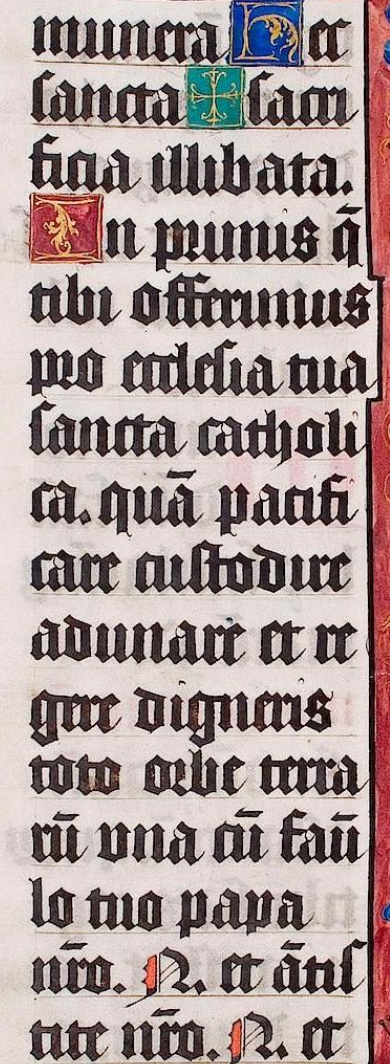 munera Hec
sancta ✠ sacri
ficia illibata.
In primis q̄
tibi offerimus
pro ecclesia tua
sancta catholi
ca. quā pacifi
care custodire
adunare et re
gere digneris
toto orbe terra
rū vna cū famu
lo tuo papa
nr̄o. N. et ātis
tite nr̄o. N. et